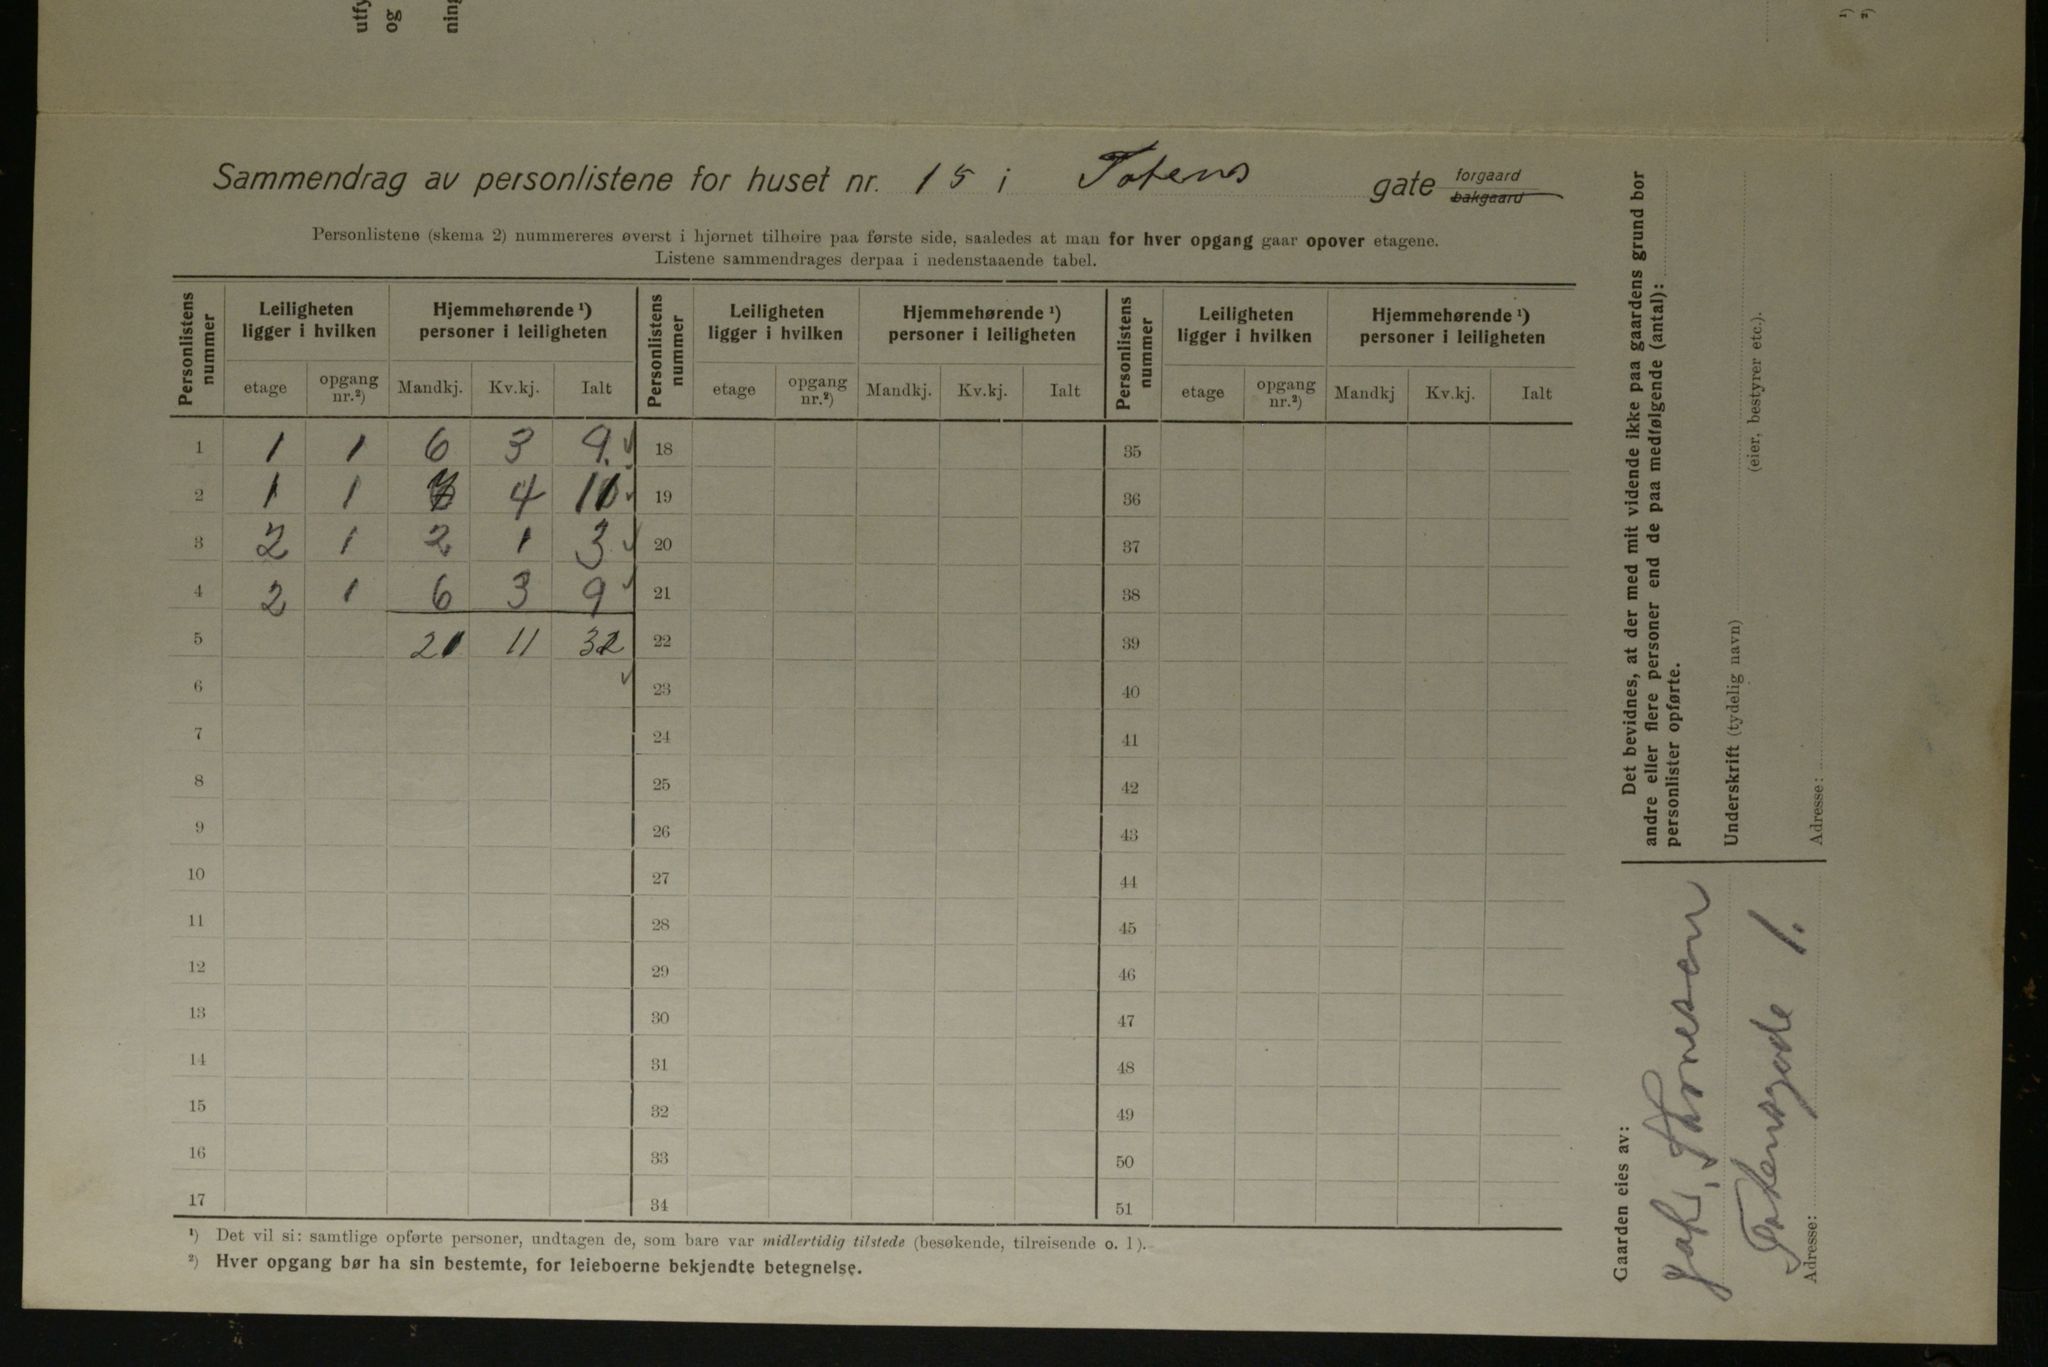 Sammendrag av personlistene for huset nr. 15 i Totens gate forgaard bakgaard
Personlistene (skema 2) nummereres øverst i hjørnet tilhøire paa første side, saaledes at man for hver opgang gaar opover etagene.
Listene sammendrages derpaa i nedenstaaende tabel.
Personlistens nummer | Leiligheten ligger i hvilken | Hjemmehørende ¹) personer i leiligheten | Personlistens nummer | Leiligheten ligger i hvilken | Hjemmehørende ¹) personer i leiligheten | Personlistens nummer | Leiligheten ligger i hvilken | Hjemmehørende ¹) personer i leiligheten
etage | opgang nr.²) | Mandkj. | Kv.kj. | Ialt | etage | opgang nr.²) | Mandkj. | Kv.kj. | Ialt | etage | opgang nr.²) | Mandkj | Kv.kj. | Ialt
1 | 1 | 1 | 6 | 3 | 9 | 18 | 35
2 | 1 | 1 | 7 | 4 | 11 | 19 | 36
3 | 2 | 1 | 2 | 1 | 3 | 20 | 37
4 | 2 | 1 | 6 | 3 | 9 | 21 | 38
5 | 21 | 11 | 32 | 22 | 39
6 | 23 | 40
7 | 24 | 41
8 | 25 | 42
9 | 26 | 43
10 | 27 | 44
11 | 28 | 45
12 | 29 | 46
13 | 30 | 47
14 | 31 | 48
15 | 32 | 49
16 | 33 | 50
17 | 34 | 51
¹) Det vil si: samtlige opførte personer, undtagen de, som bare var midlertidig tilstede (besøkende, tilreisende o. l).
²) Hver opgang bør ha sin bestemte, for leieboerne bekjendte betegnelse.
Det bevidnes, at der med mit vidende ikke paa gaardens grund bor
andre eller flere personer end de paa medfølgende (antal):
personlister opførte.
Underskrift (tydelig navn)
(eier, bestyrer etc.).
Adresse:
Gaarden eies av:
Totensgade 1.
Adresse:
utfy
og
ning
¹)
²)